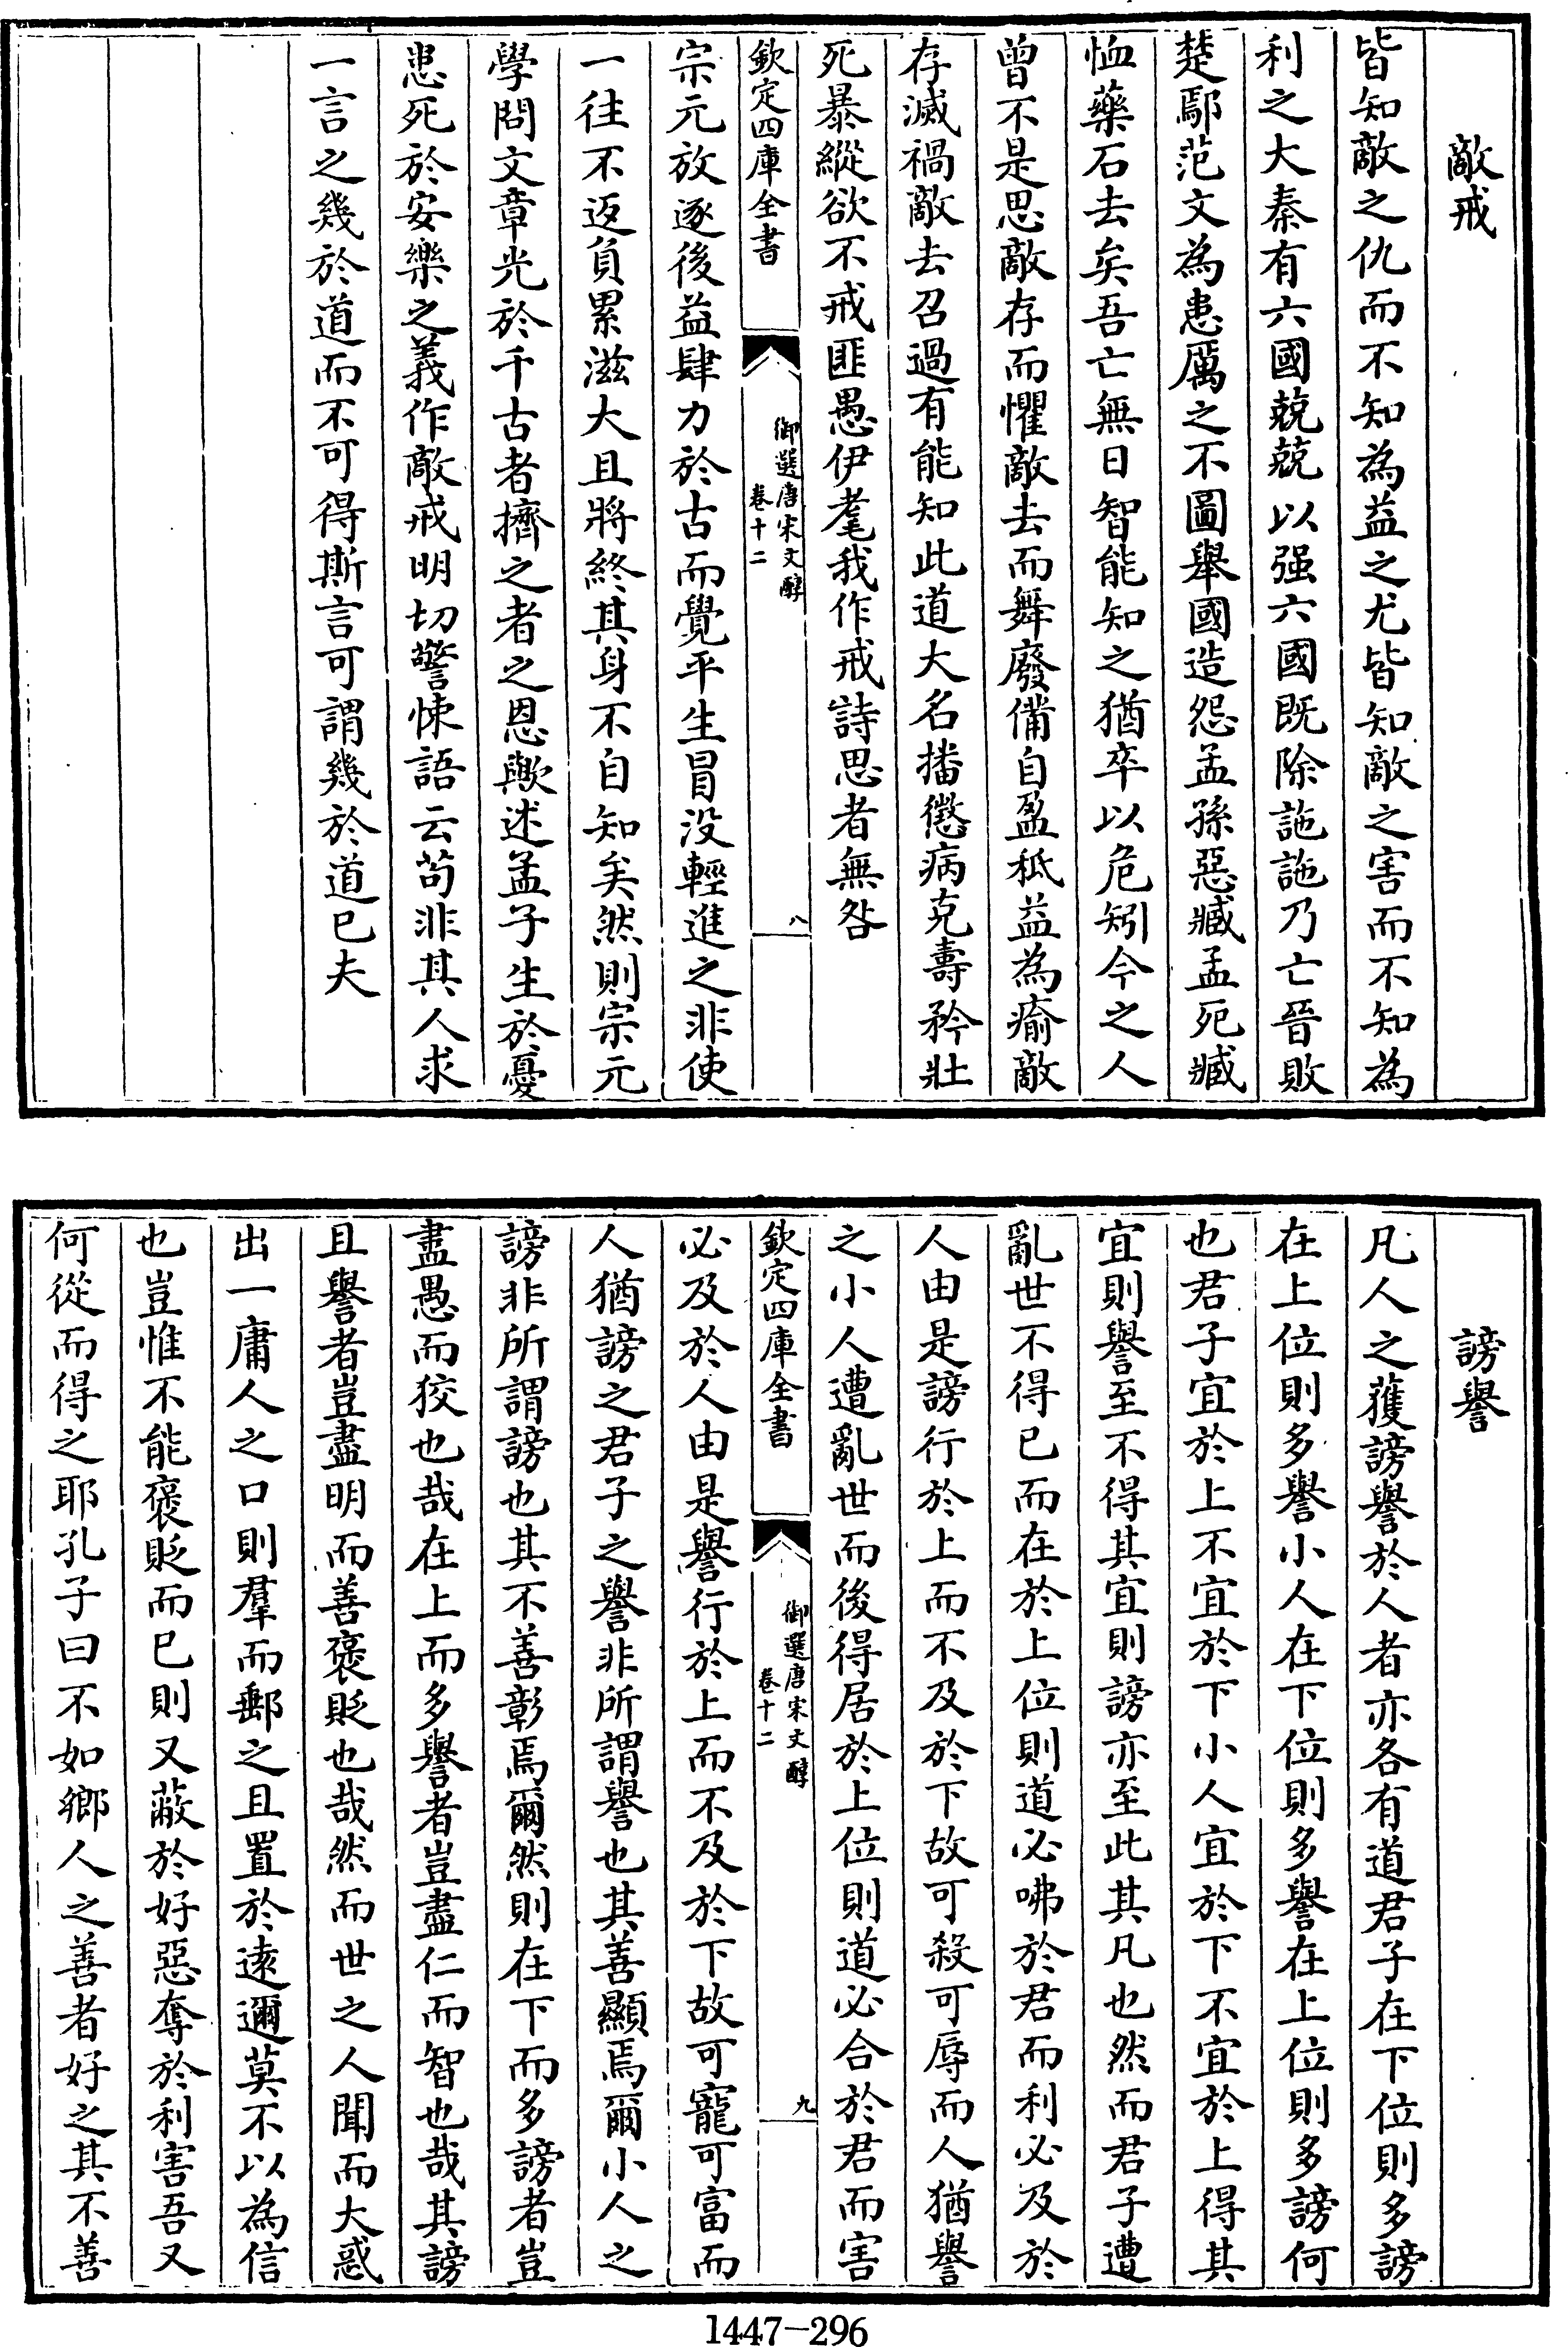 敵戒
皆知敵之仇而不知為益之尤皆知敵之害而不知為
利之大秦有六國兢兢以强六國既除訑訑乃亡晉敗
楚鄢范文為患厲之不圖舉國造怨孟孫惡臧孟死臧
恤藥石去矣吾亡無日智能知之猶卒以危矧今之人
曾不是思敵存而懼敵去而舞廢備自盈秪益為瘉敵
存滅禍敵去召過有能知此道大名播懲病克壽矜壯
死暴縱欲不戒匪愚伊耄我作戒詩思者無咎
欽定四庫全書
御選唐宋文醇
卷十二
八
宗元放逐後益肆力於古而覺平生冒没輕進之非使
一往不返負累滋大且將終其身不自知矣然則宗元
學問文章光於千古者擠之者之恩歟述孟子生於憂
患死於安樂之義作敵戒明切警悚語云苟非其人求
一言之幾於道而不可得斯言可謂幾於道已夫
謗譽
凡人之獲謗譽於人者亦各有道君子在下位則多謗
在上位則多譽小人在下位則多譽在上位則多謗何
也君子宜於上不宜於下小人宜於下不宜於上得其
宜則譽至不得其宜則謗亦至此其凡也然而君子遭
亂世不得已而在於上位則道必咈於君而利必及於
人由是謗行於上而不及於下故可殺可辱而人猶譽
之小人遭亂世而後得居於上位則道必合於君而害
欽定四庫全書
御選唐宋文醇
卷十二
九
必及於人由是譽行於上而不及於下故可寵可富而
人猶謗之君子之譽非所謂譽也其善顯焉爾小人之
謗非所謂謗也其不善彰焉爾然則在下而多謗者豈
盡愚而狡也哉在上而多譽者豈盡仁而智也哉其謗
且譽者豈盡明而善褒貶也哉然而世之人聞而大惑
出一庸人之口則羣而郵之且置於遠邇莫不以為信
也豈惟不能褒貶而已則又蔽於好惡奪於利害吾又
何從而得之耶孔子曰不如鄉人之善者好之其不善
1447-296